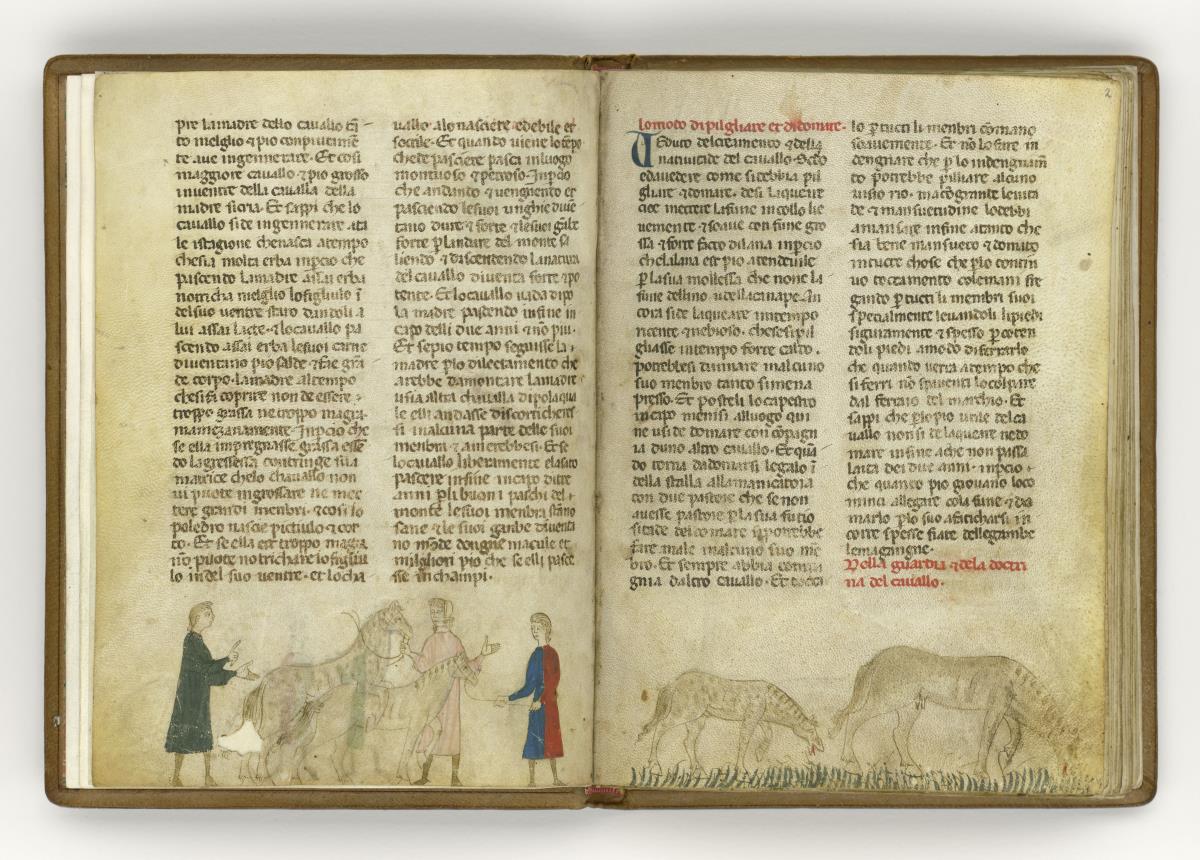 pre la madre dello cauallo tā
to melglio ⁊ pio conpiutamē
te aue ingennerare. Et cosi
maggiore cauallo ⁊ pio grosso
in uentre della caualla della
madre sicria. Et sappi che lo
cauallo si de ingennerare ata
le istagione che nasca atempo
che sia molta erba inpcio che
pascendo la madre assai erba
notricha melglio lo figliuolo ī
del suo uentre stato dandoli a
lui assai lacte. ⁊ lo cauallo pa
scendo assai erba le suoi carne
diuentano pio salde ⁊ fae grā
de corpo. la madre al tempo
che si fa coprire non de essere
troppo grassa ne troppo magra
ma mezanamente. Inpcio che
se ella impregnasse grassa essē
do la grassessa contringe sua
matrice che lo chauallo non
ui puote ingrossare ne met
tere grandi menbri. ⁊ cosi lo
poledro nascie pictiulo ⁊ cor
to. Et se ella est troppo magra
nō puote notrichare lo figliuo
lo in del suo uentre. et lo cha
uallo alo nasciere e debile et
sottile. Et quando uiene lo tēpo
che de pasciere pasci in luogo
montuoso ⁊ petroso. Inpcio
che andando ⁊ uengnento et
pasciendo le suoi unghie diue
tano dure ⁊ forte ⁊ le suoi gābe
forte p landare del monte sa
liendo ⁊ discentendo la natura
del cauallo diuenta forte ⁊ po
tente. Et lo cauallo uada dipo
la madre pastendo infine in
capo delli due anni ⁊ nō piu.
Et se pio tempo seguisse la
madre p lo dilectamento che
arebbe da montare la madre
u sia altra caualla dipo la qua
le elli andasse discortichereb
si in alcuna parte delle suoi
menbra ⁊ auirebbesi. Et se
lo cauallo liberamente e lasato
pascere infine in capo di tre
anni p li buoni paschi del
monte le suoi menbra stano
sane ⁊ le suoi ganbe diuenta
no monde dongne macule et
milgliori pio che se elli pasce
sse in champi.
2
lo moto di pilgliare et di domare.
Veduto del criamento ⁊ della
natiuitade del cauallo. Seto
e da uedere come si debbia pil
gliare ⁊ domare. desi laqueare
cioe mettere la fune in collo lie
uemente ⁊ soaue con fune gro
ssa ⁊ forte facto di lana inpcio
che la lana est pio atendeuile
p la sua mollessa che none la
fune del lino u della canape. An
cora si de laqueare in tempo
ricente ⁊ nebioso. che se si pil
gliasse in tempo forte caldo.
potrebbesi dannare in alcuno
suo menbro tanto si mena
presso. Et posteli lo capestro
in capo menisi al luogo qui
ne u si de domare con conpagn
ia duno altro cauallo. Et quā
do torna da domarsi legalo ī
della stalla alla maniatoia
con due pastoie che se non
auesse pastoie p la sua furio
sitade del domare si potrebbe
fare male in alcuno suo mē
bro. Et sempre abbia compa
gnia daltro cauallo. Et tocci
lo p tucti li menbri co mano
soauemente. Et nō lo fare in
dengnare che p lo indengnam̄
to potrebbe pilliare alcuno
uisio rio. ma cō grante leuita
de ⁊ mansuetudine lo debbi
amansare infine atanto che
sia bene mansueto ⁊ domato
in tucte chose che p lo contin
uo toccamento cole mani fre
gando p tucti li menbri suoi
spetialmente leuandoli li piedi
siguramente ⁊ spesso p coten
doli piedi amodo di ferrarlo
che quando uerra tempo che
si ferri nō spauenti lo colpare
dal ferraio del marchio. Et
sappi che p lo pio utile del ca
uallo non si de laqueare ne do
mare infine ache non passa
laita dei due anni. inpcio
che quanto pio giouano loco
minci allegare cola fune ⁊ do
marlo p lo suo afaticharsi in
corre spesse fiate delle gambe
le magangne.
Della guardia ⁊ de la doctri
na del cauallo.